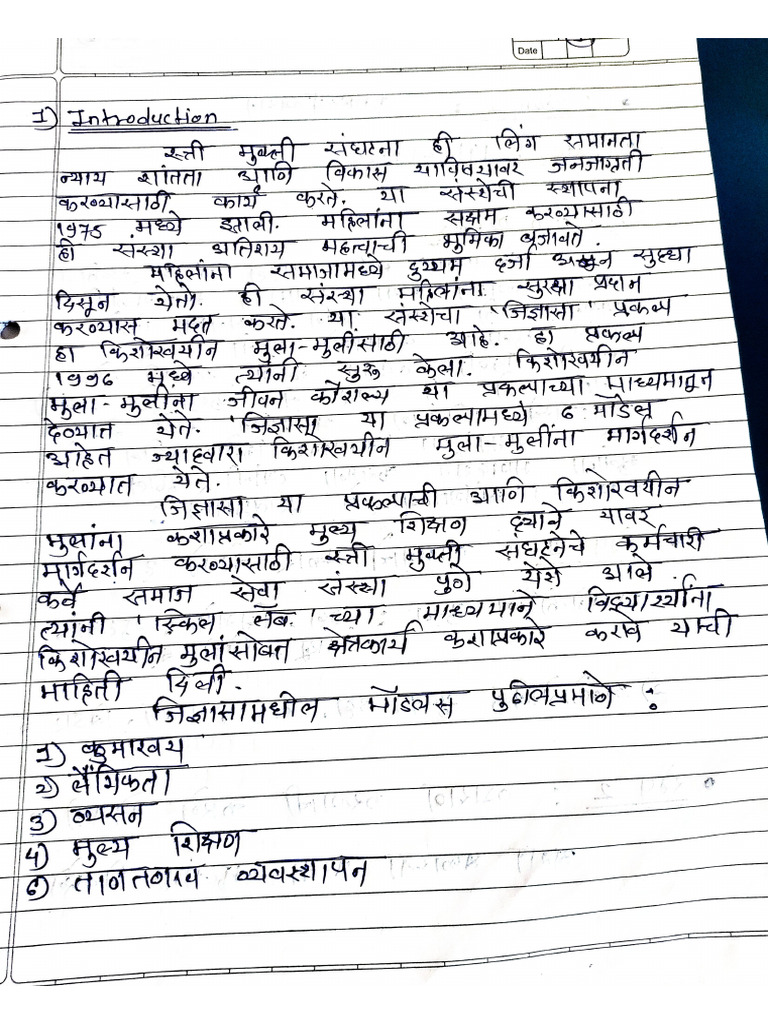 Date
I) Introduction
स्त्री मुक्ती संघटना ही लिंग समानता
न्याय शांतता आणि विकास याविषयावर जनजागृती
करण्यासाठी कार्य करते. या संस्थेची स्थापना
1975 मध्ये झाली. महिलांना सक्षम करण्यासाठी
ही संस्था अतिशय महत्वाची भुमिका बजावते.
महिलांना समाजामध्ये दुय्यम दर्जा असून सुध्दा
दिसून येतो. ही संस्था महिलांना सुरक्षा प्रदान
करण्यास मदत करते. या संस्थेचा 'जिज्ञासा' प्रकल्प
हा किशोरवयीन मुला-मुलींसाठी आहे. हा प्रकल्प
1996 मध्ये त्यांनी सुरू केला. किशोरवयीन
मुला-मुलींना जीवन कौशल्य या प्रकल्पाच्या माध्यमातून
देण्यात येते. 'जिज्ञासा' या प्रकल्पामध्ये ८ मॉडेल
आहेत ज्याद्वारा किशोरवयीन मुला-मुलींना मार्गदर्शन
करण्यात येते.
जिज्ञासा या प्रकल्पाची आणि किशोरवयीन
मुलांना कशाप्रकारे मुल्य शिक्षण द्याने यावर
मार्गदर्शन करण्यासाठी स्त्री मुक्ती संघटनेचे कर्मचारी
कर्वे समाज सेवा संस्था पुणे येथे आले.
त्यांनी 'स्किल लॅब' च्या माध्यमाने विद्यार्थ्यांना
किशोरवयीन मुलांसोबत क्षेत्रकार्य कशाप्रकारे करावे याची
माहिती दिली.
जिज्ञासामधील मॉडेलस पुढीलप्रमाणे :
1) कुमारवय
2) लैंगिकता
3) व्यसन
4) मुल्य शिक्षण
5) ताणतणाव व्यवस्थापन